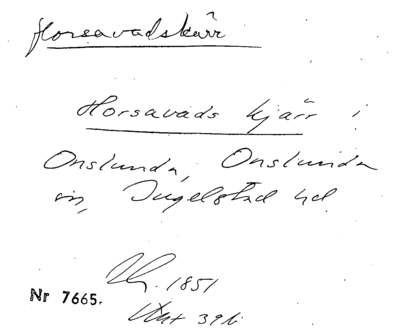 Horsavadskärr
Horsavads kjärr i
Onslunda, Onslunda
sn, Ingelstad hd
1851
Nr 7665.